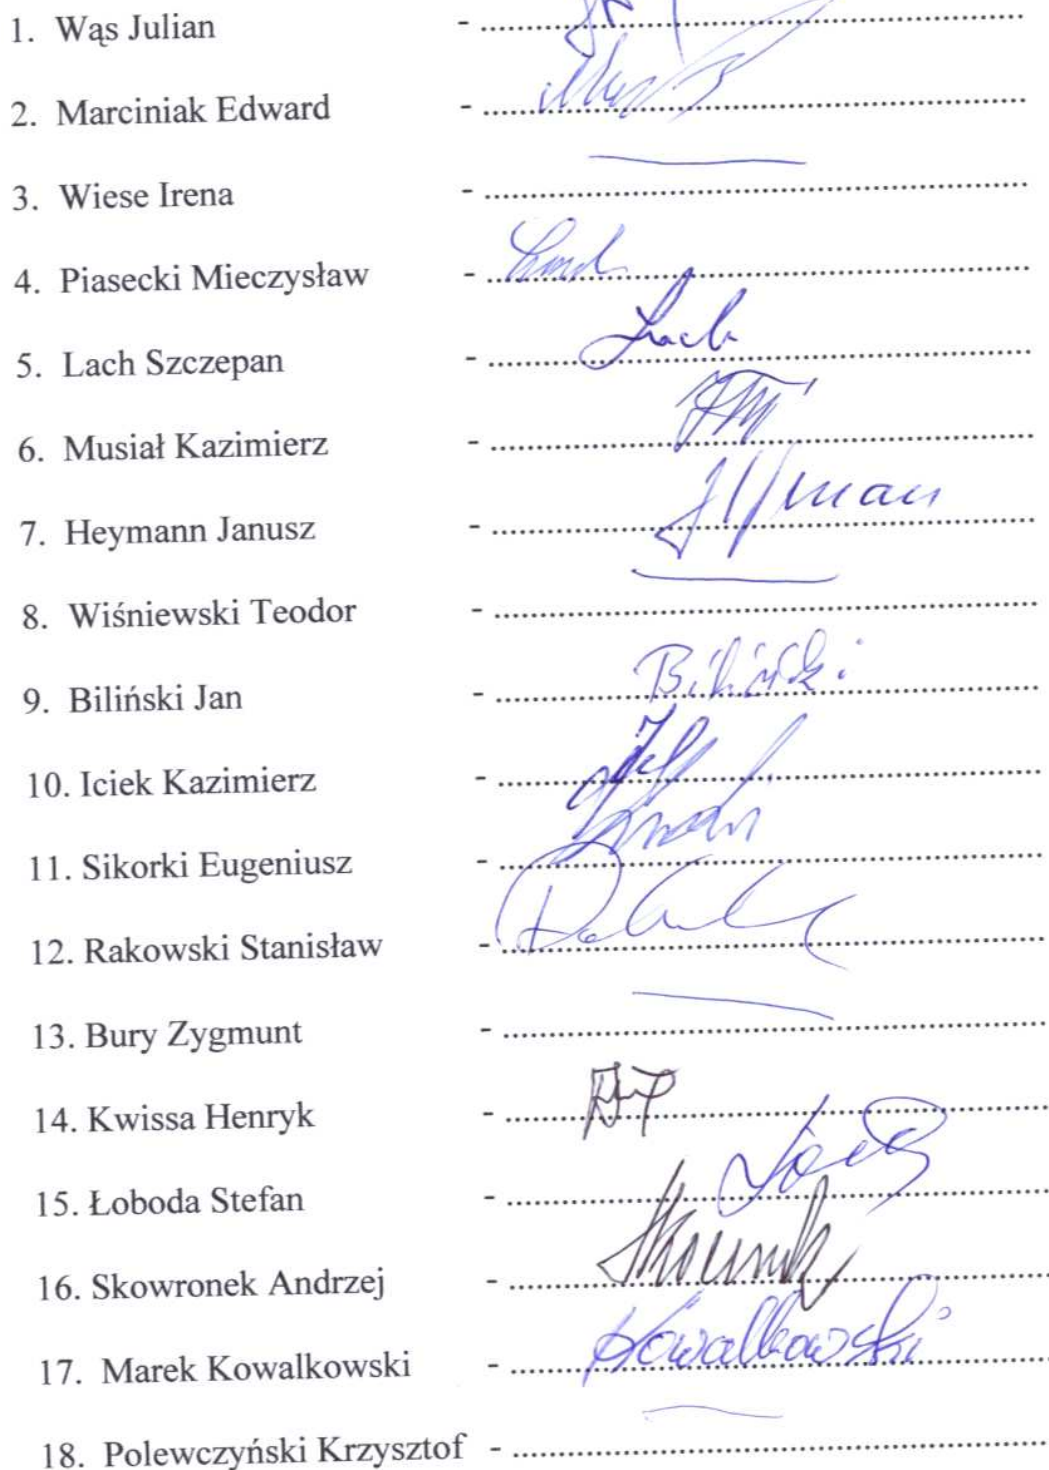 1. Wąs Julian - ........................
2. Marciniak Edward - ........................
3. Wiese Irena - ........................
4. Piasecki Mieczysław - ........................
5. Lach Szczepan - ........................ Lach
6. Musiał Kazimierz - ........................
7. Heymann Janusz - ........................
8. Wiśniewski Teodor - ........................
9. Biliński Jan - ........................ Biliński
10. Iciek Kazimierz - ........................
11. Sikorki Eugeniusz - ........................
12. Rakowski Stanisław - ........................
13. Bury Zygmunt - ........................
14. Kwissa Henryk - ........................
15. Łoboda Stefan - ........................
16. Skowronek Andrzej - ........................
17. Marek Kowalkowski - ........................ Kowalkowski
18. Polewczyński Krzysztof - ........................